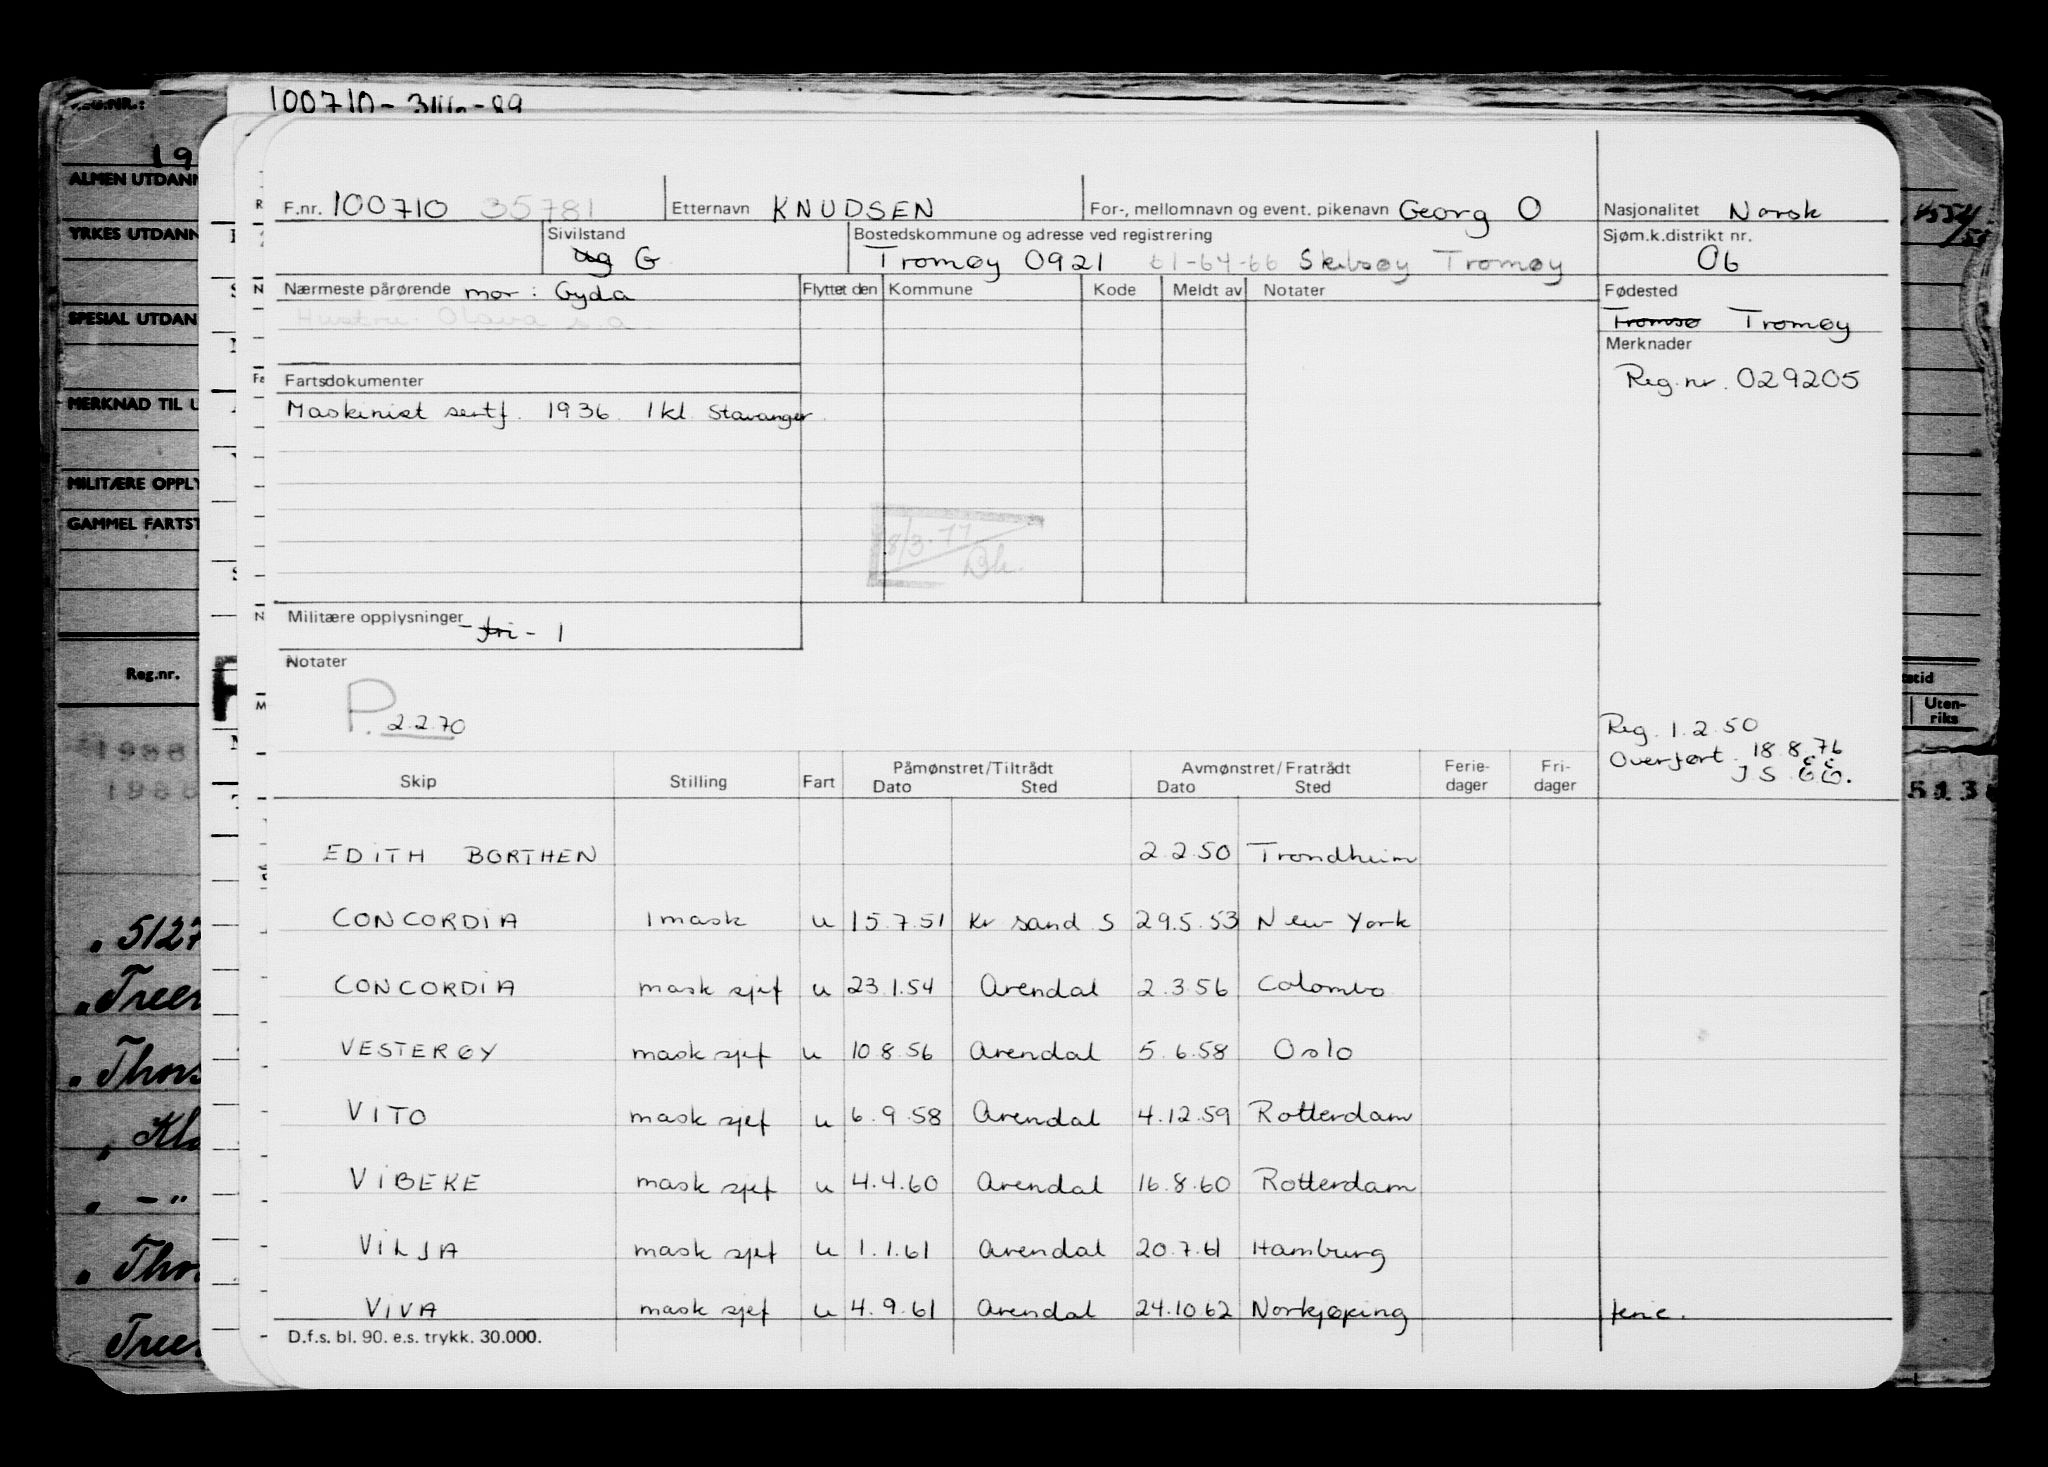 100710-
F.nr. 100710 35781 Etternavn KNUDSEN For-, mellomnavn og event. pikenavn Georg O Nasjonalitet Norsk
Sivilstand ug G Bostedskommune og adresse ved registrering Tromøy 0921 61-64-66 Skilsøy Tromøy Sjøm.k.distrikt nr. 06
Nærmeste pårørende mor: Gyda Flyttet den Kommune Kode Meldt av Notater Fødested
Hustru: Olava s.a. Tromsø Tromøy
Merknader
Reg.nr. 029205
Fartsdokumenter
Maskinist sertf. 1936 1kl Stavanger.
8/3.77
Militære opplysninger - fri - 1
Notater
P. 2.2.70
Reg. 1.2.50
Overført. 18.8.76
Skip Stilling Fart Påmønstret/Tiltrådt Dato Sted Avmønstret/Fratrådt Dato Sted Ferie-dager Fri-dager
EDITH BORTHEN 2.2.50 Trondheim
CONCORDIA 1mask u 15.7.51 Kr sand S 29.5.53 New York
CONCORDIA mask sjef u 23.1.54 Arendal 2.3.56 Colombo
VESTERØY mask sjef u 10.8.56 Arendal 5.6.58 Oslo
VITO mask sjef u 6.9.58 Arendal 4.12.59 Rotterdam
VIBEKE mask sjef u 4.4.60 Arendal 16.8.60 Rotterdam
VILJA mask sjef u 1.1.61 Arendal 20.7.61 Hamburg
VIVA mask sjef u 4.9.61 Arendal 24.10.62 Norkjøping ferie.
D.f.s. bl. 90. e.s. trykk. 30.000.
ALMEN UTDANN
YRKES UTDANN
SPESIAL UTDAN
MERKNAD TIL U
MILITÆRE OPPLY
GAMMEL FARTST
Reg.nr.
Uten-
riks